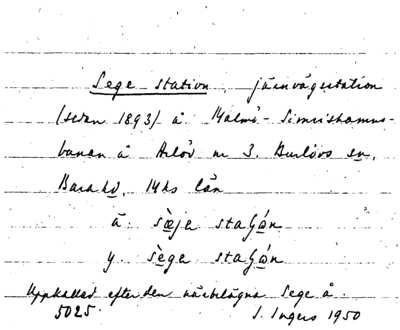 Sege station, järnvägsstation
(sedan 1893) å Malmö - Simrishamns-
banan å Arlöv nr 3. Burlövs sn,
Bara hd, Mhs län
ä. sæ̀ja staʃón
y. sèga staʃón
Uppkallad efter den närbelägna Sege å.
5025. S. Ingers 1950